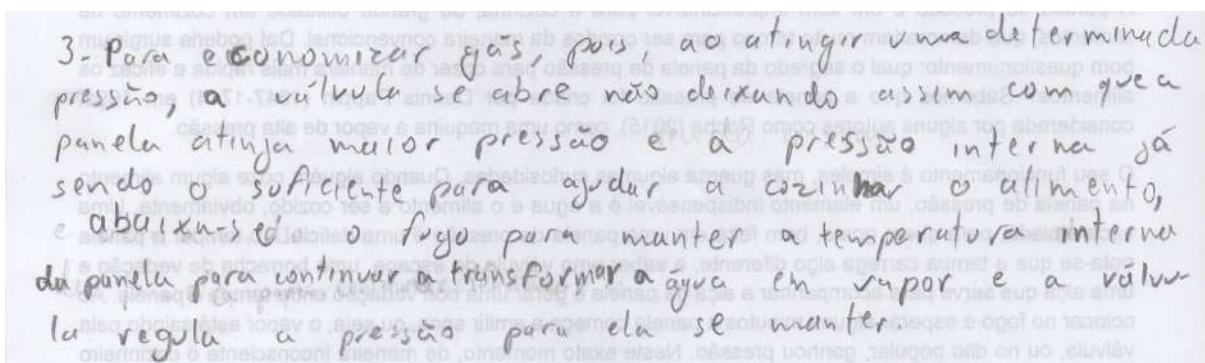 3- Para economizar gás, pois, ao atingir uma determinada
pressão, a válvula se abre não deixando assim com que a
panela atinja maior pressão e a pressão interna já
sendo o suficiente para ajudar a cozinhar o alimento,
e abaixa-se o fogo para manter a temperatura interna
da panela para continuar a transformar a água em vapor e a válvu-
la regula a pressão para ela se manter.